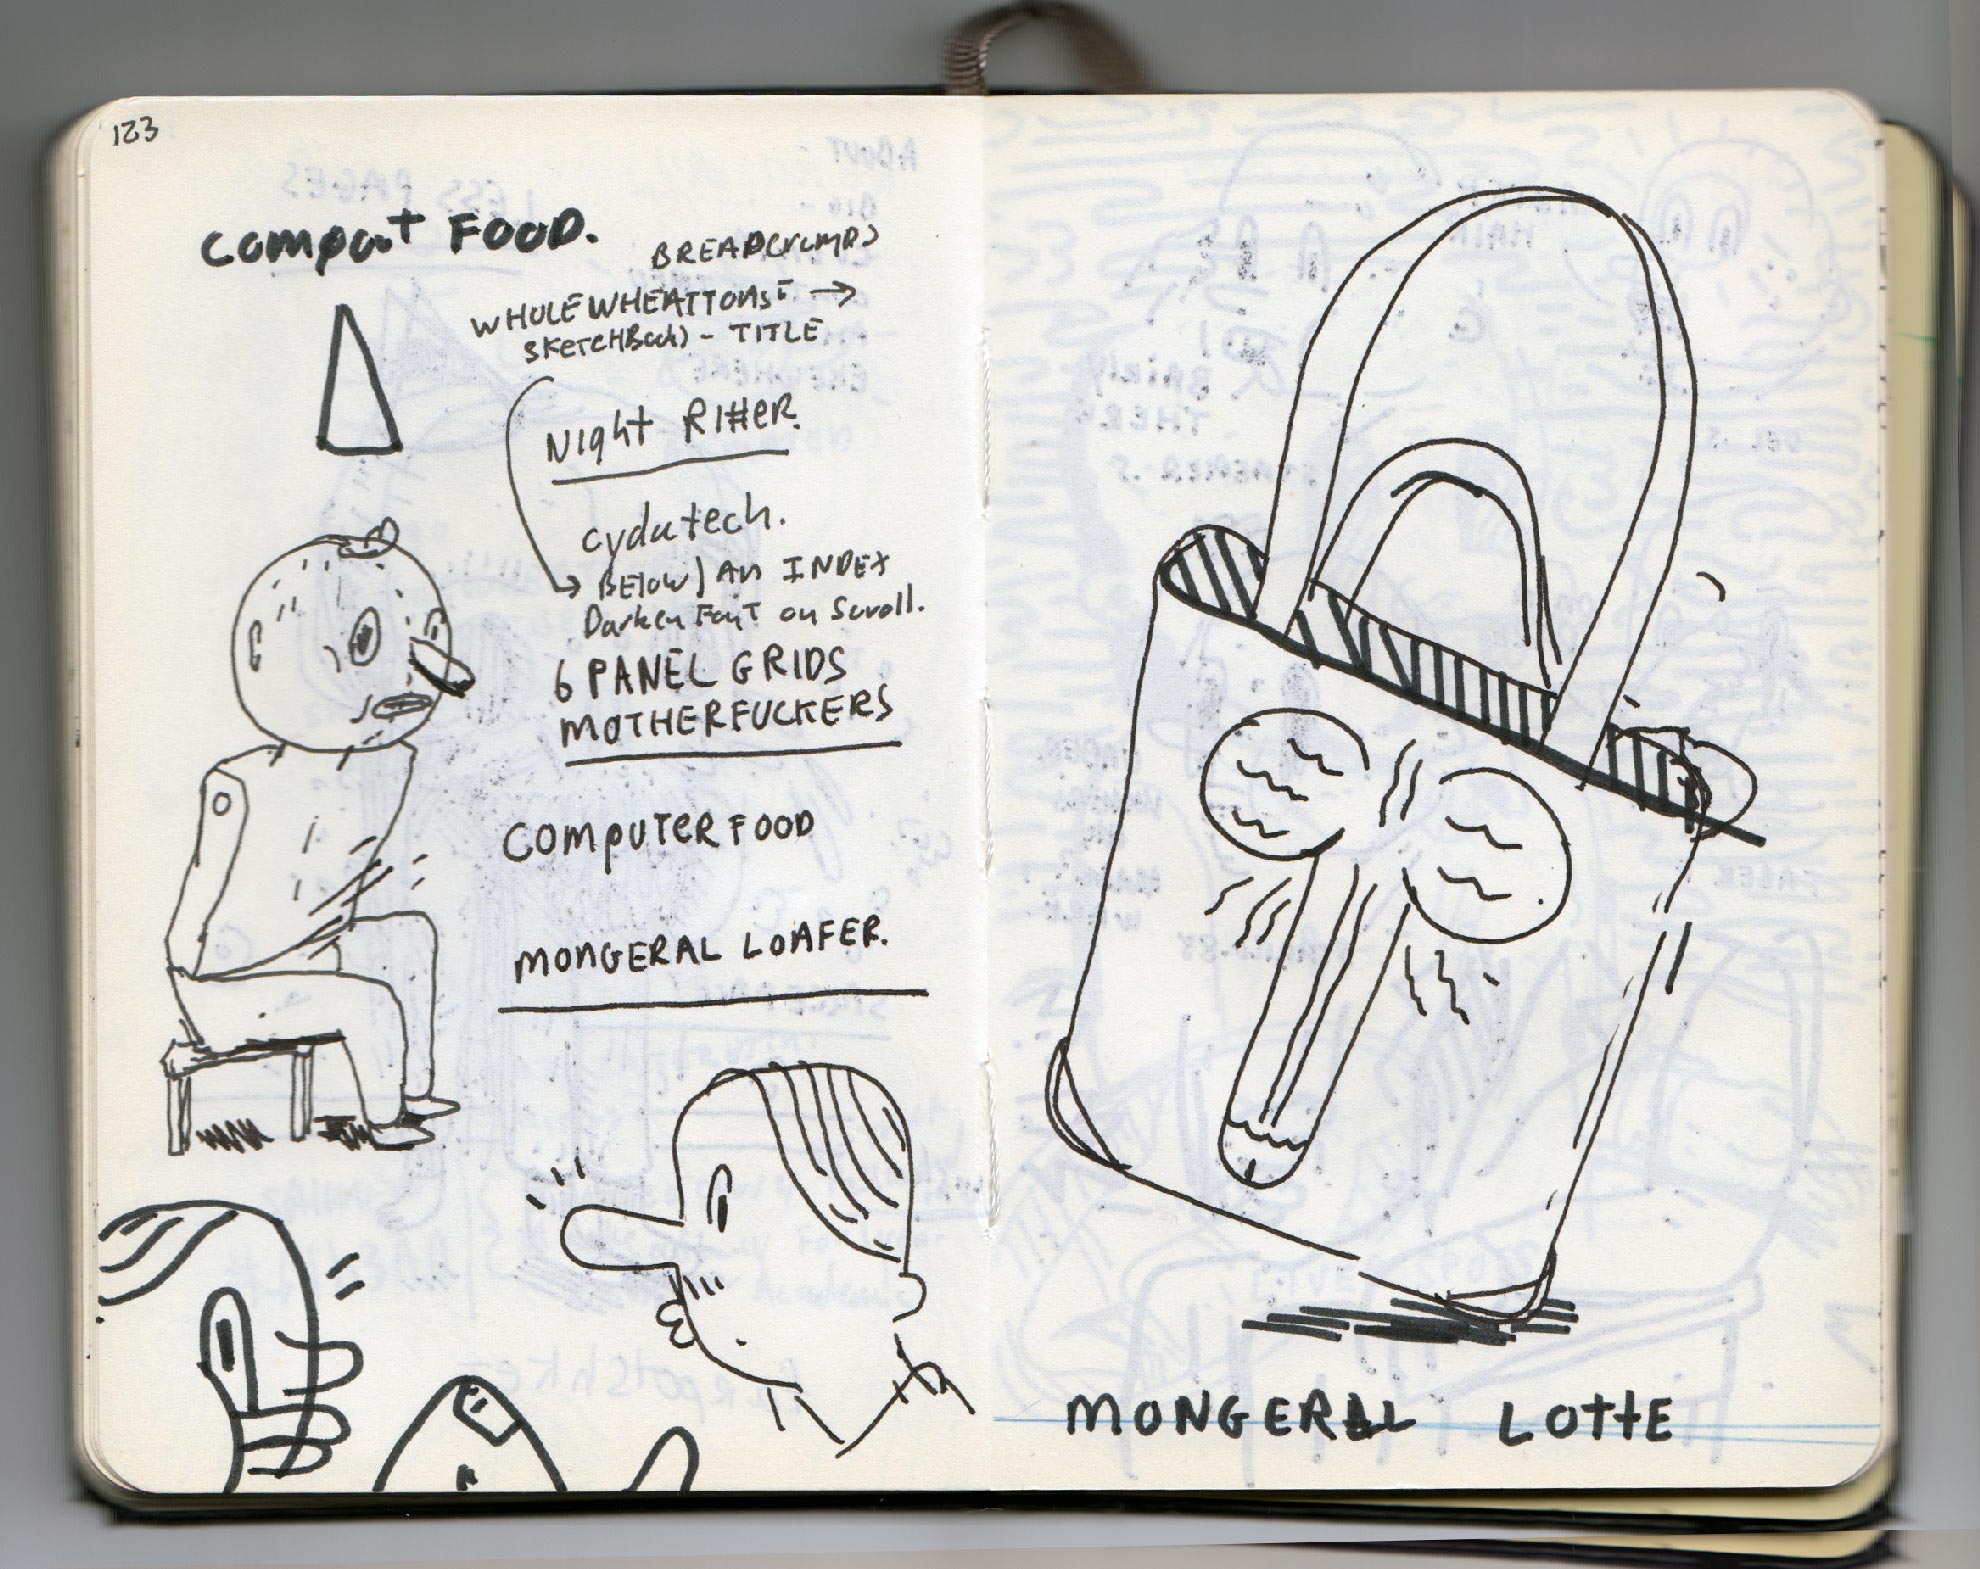 123
Compact FOOD.
BREADCRUMBS
WHOLEWHEATTOAST →
SKETCHBook) - TITLE
Night RittER.
cydatech.
BElow) An INDEX
Darken Font on Scroll.
6 PANEL GRIDS
MOTHERFUCKERS
COMPUTER FOOD
MONGERAL LOAFER.
MONGERAL LOTTE